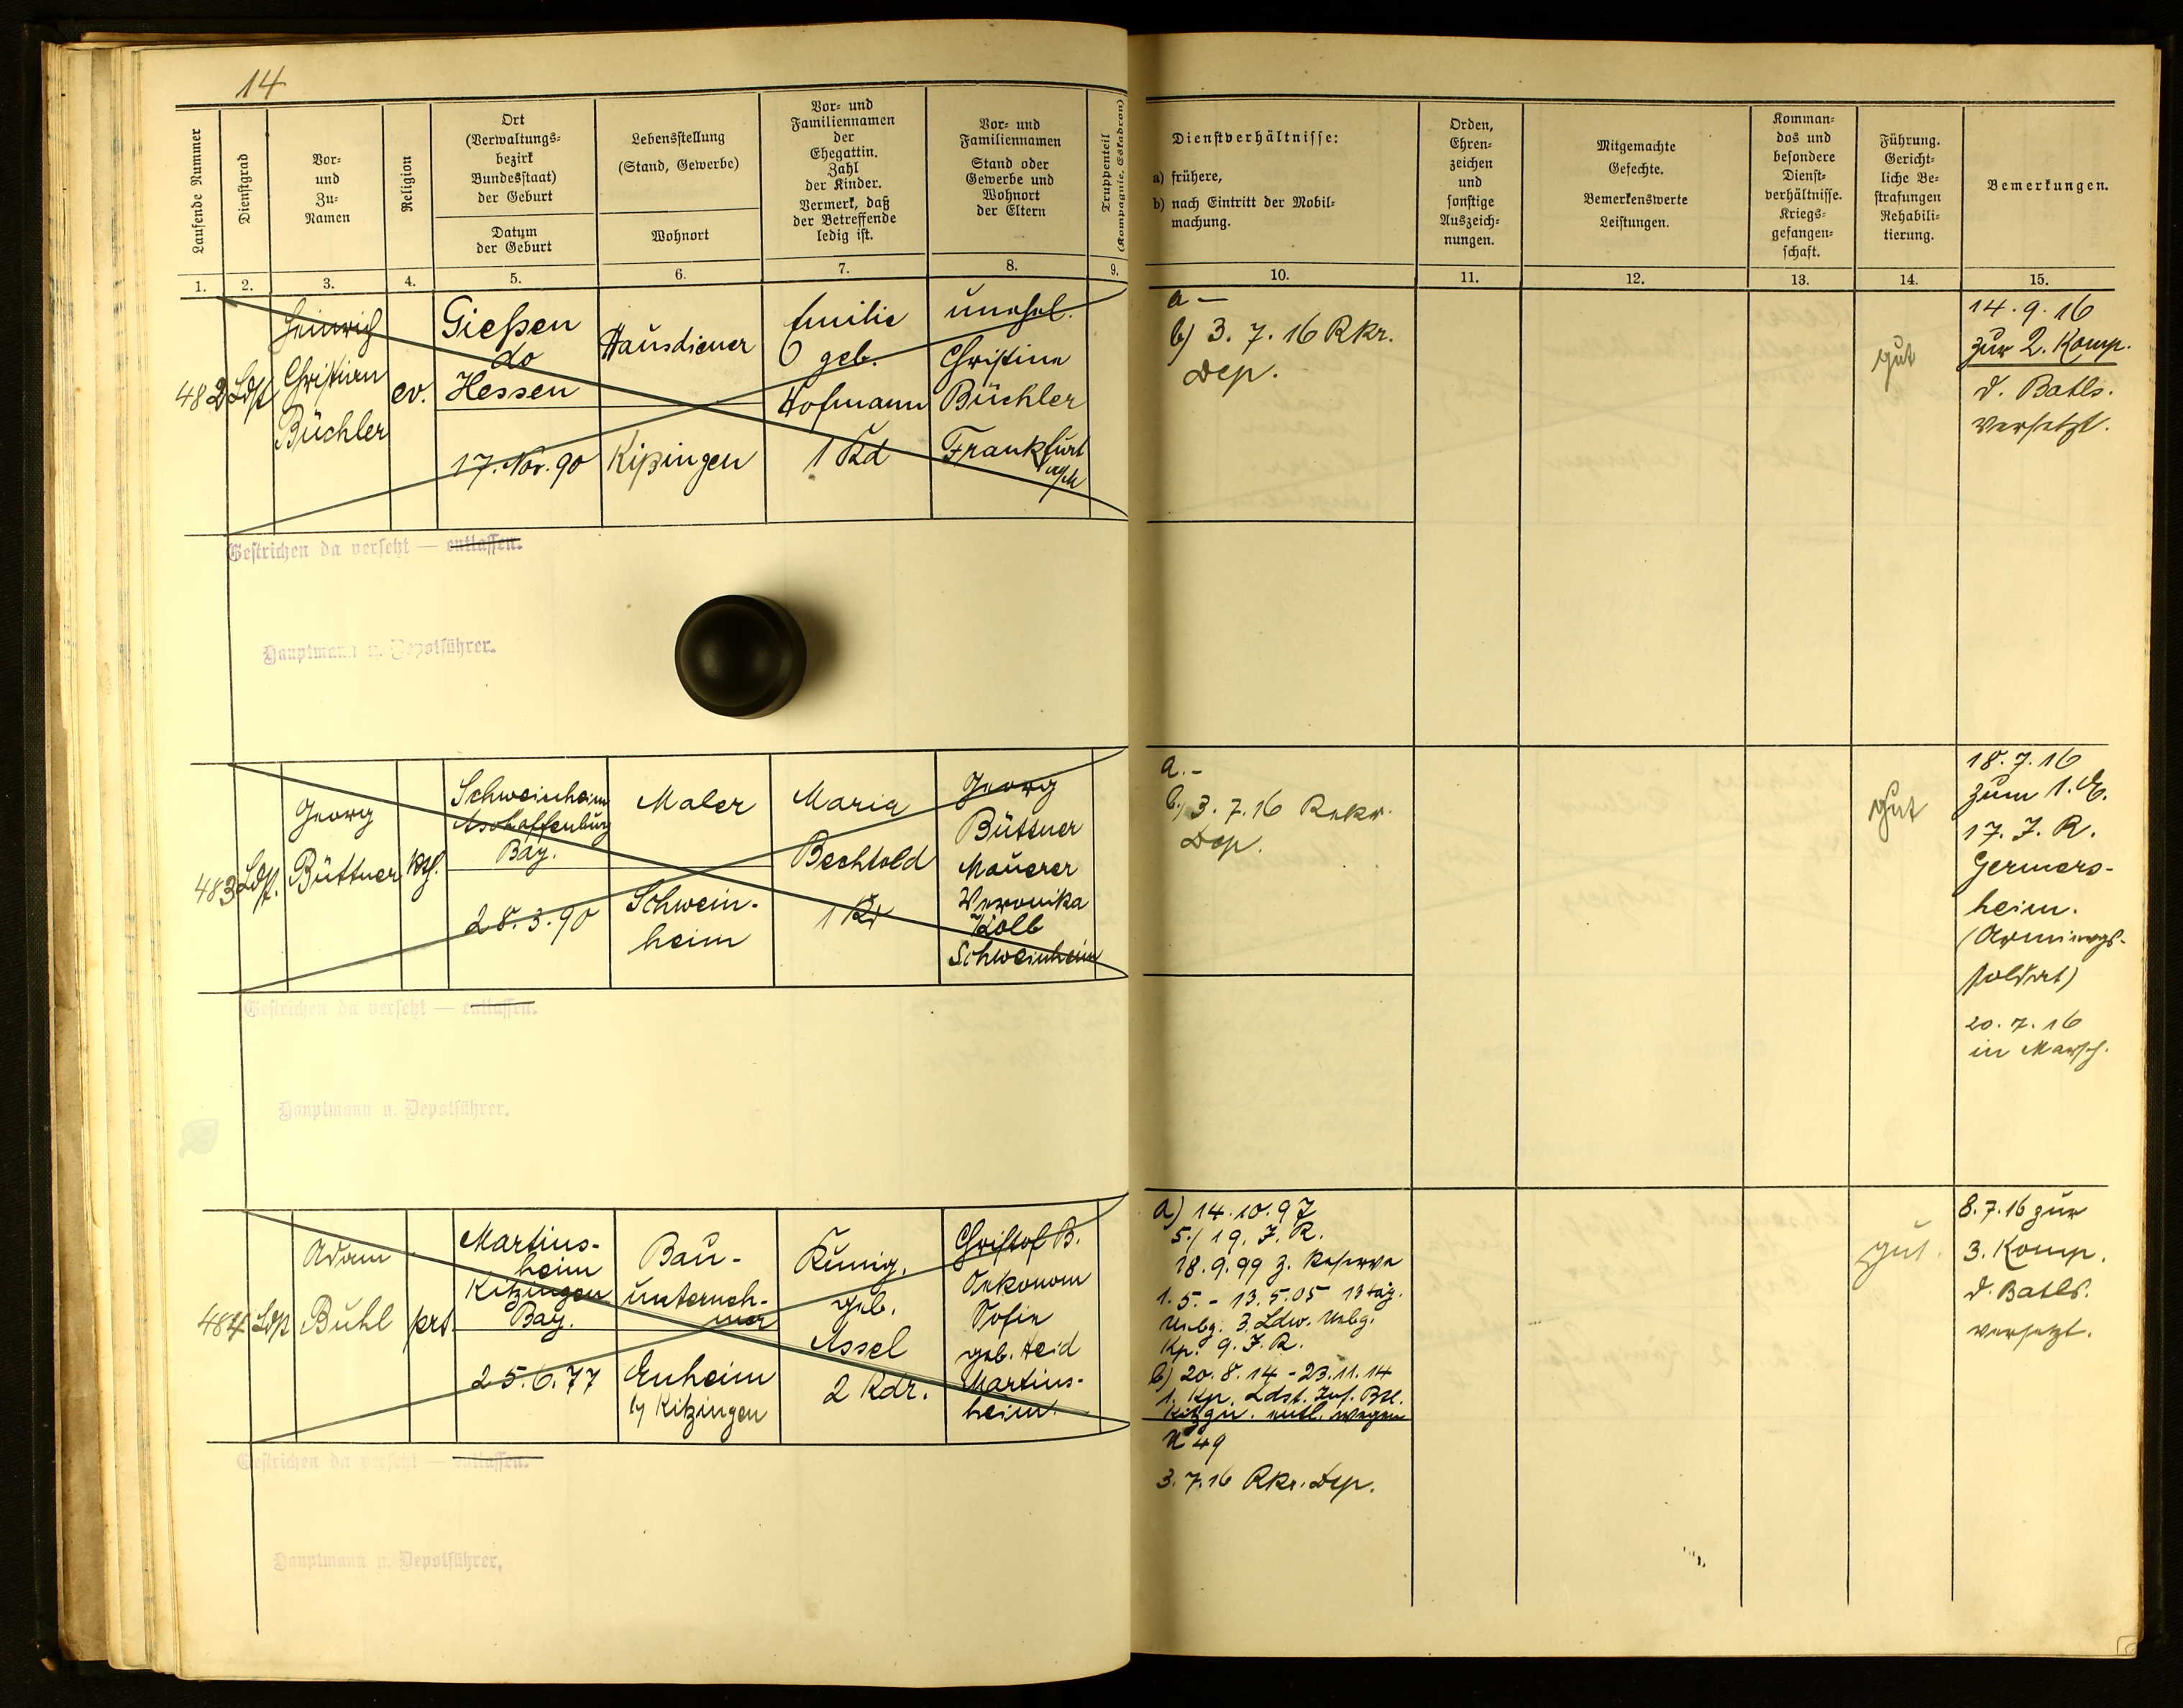 14
Laufende Nummer
Dienstgrad
Vor-
und
Zu-
Namen
Religion
Ort
(Verwaltungs-
bezirk
Bundesstaat)
der Geburt
Datum
der Geburt
Lebensstellung
(Stand, Gewerbe)
Wohnort
Vor- und
Familiennamen
der
Ehegattin.
Zahl
der Kinder.
Vermerk, daß
der Betreffende
ledig ist.
Vor- und
Familiennamen
Stand oder
Gewerbe und
Wohnort
der Eltern
Truppenteil
(Kompagnie, Eskadron)
Dienstverhältnisse:
a) frühere,
b) nach Eintritt der Mobil-
machung.
Orden,
Ehren-
zeichen
und
sonstige
Auszeich-
nungen.
Mitgemachte
Gefechte.
Bemerkenswerte
Leistungen.
Komman-
dos und
besondere
Dienst-
verhältnisse.
Kriegs-
gefangen-
schaft.
Führung.
Gericht-
liche Be-
strafungen
Rehabili-
tierung.
Bemerkungen.
1. 2. 3. 4. 5. 6. 7. 8. 9. 10. 11. 12. 13. 14. 15.
482
Ldst
Heinrich
Christian
Büchler
ev.
Gießen
do
Hessen
17. Nov. 90
Hausdiener
Kitzingen
Emilie
geb.
Hofmann
1 Kd
unehel.
Christine
Büchler
Frankfurt
a/M
a —
b) 3. 7. 16 Rkr.
Dep.
gut
14. 9. 16
zur 2. Komp.
d. Batls.
versetzt.
Gestrichen da versetzt — entlassen.
Hauptmann u. Depotführer.
483
Ldst.
Georg
Büttner
kth.
Schweinheim
Aschaffenburg
Bay.
28. 3. 90
Maler
Schwein-
heim
Maria
Bechtold
1 Kd
Georg
Büttner
Maurer
Veronika
Kolb
Schweinheim
a. -
b.) 3. 7. 16 Rekr.
Dep.
gut
18. 7. 16
zum 1. E.
17. J. R.
Germers-
heim.
(Armierungs-
soldat)
20. 7. 16
in Marsch.
Gestrichen da versetzt — entlassen.
Hauptmann u. Depotführer.
484
Ldst
Adam
Buhl
prt.
Martins-
heim
Kitzingen
Bay.
25. 6. 77
Bau-
unterneh-
mer
Enheim
b/ Kitzingen
Kunig.
geb.
Assel
2 Kdr.
Christof B.
Oekonom
Sofie
geb. Heid
Martins-
heim.
a) 14. 10. 97
5./ 19. J. R.
18. 9. 99 z. Reserve
1. 5. - 13. 5. 05 13 täg.
Uebg. 3. Ldw. Uebg.
Kp. 9. J. R.
b) 20. 8. 14 - 23. 11. 14
1. Kp. Ldst. Inf. Btl.
Kitzgn. entl. wegen
U 49
3. 7. 16 Rkr. Dep.
gut.
8. 7. 16 zur
3. Komp.
d. Batls.
versetzt.
Gestrichen da versetzt — entlassen.
Hauptmann u. Depotführer.